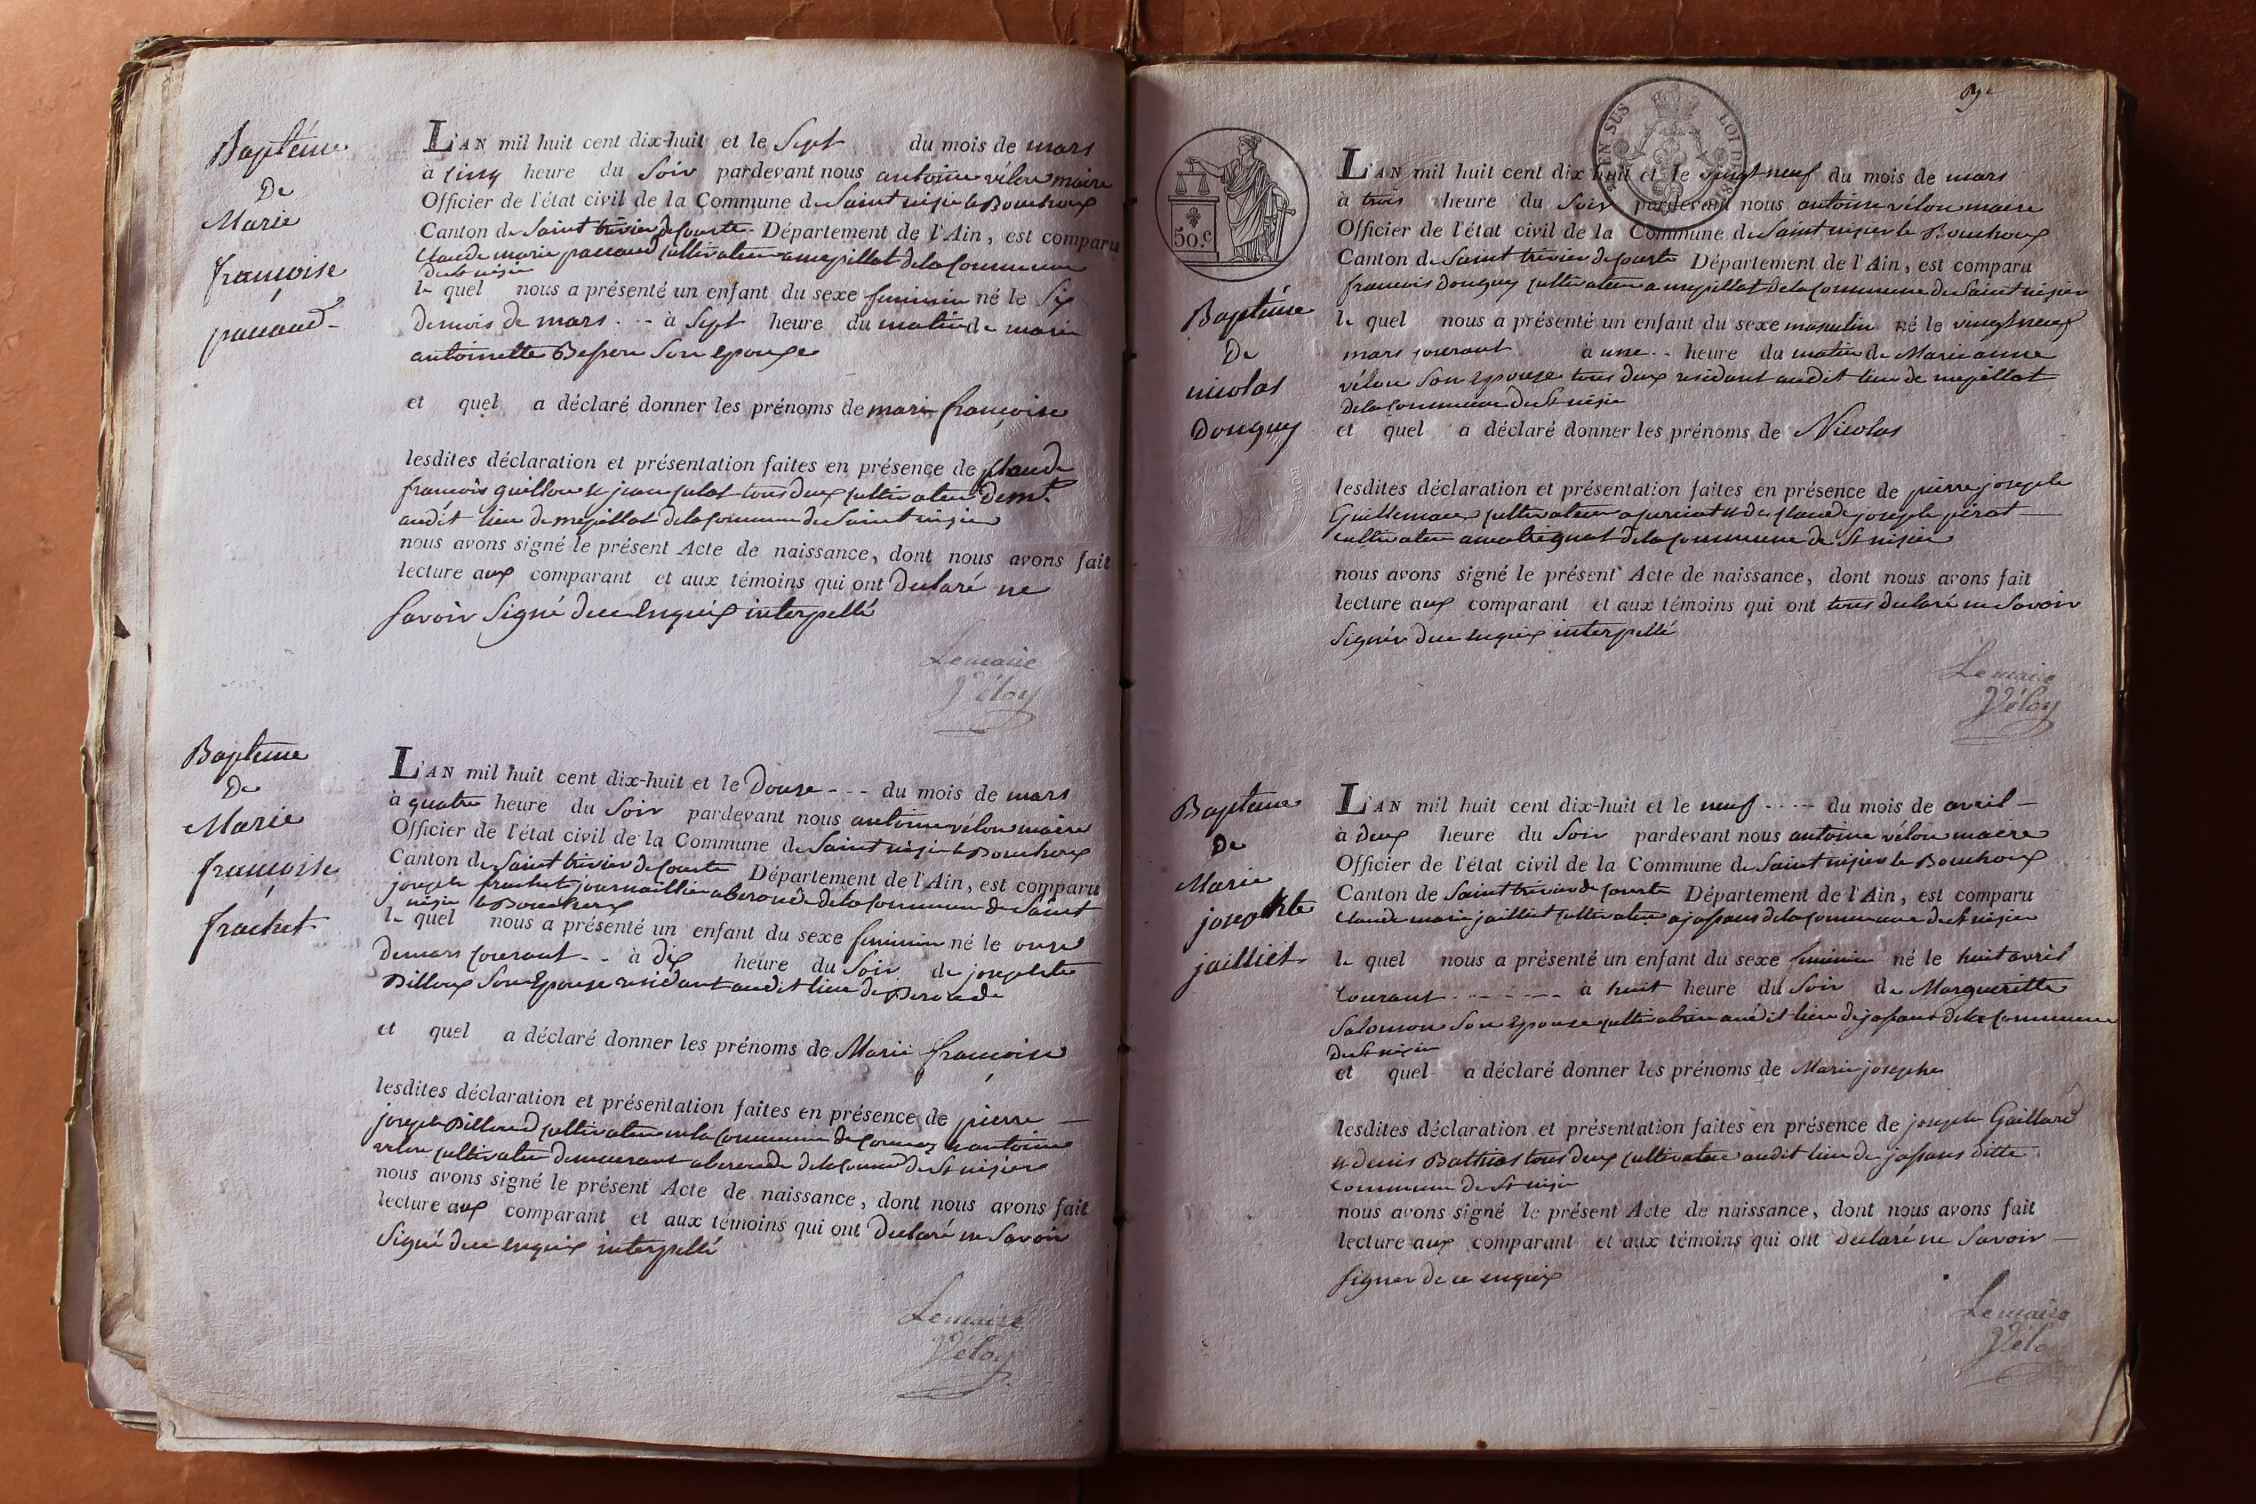 Baptême
De
Marie
françoise
pauaud
L'AN mil huit cent dix-huit et le Sept du mois de mars
à cinq heure du Soir pardevant nous antoine véloy maire
Officier de l'état civil de la Commune de Saint nizier le Bouchoux
Canton de Saint trivier de Courte Département de l'Ain, est comparu
Claude marie pauaud cultivateur a mepillat de la Commune
de St nizier
le quel nous a présenté un enfant du sexe feminin né le Six
du mois de mars à Sept heure du matin de marie
antoinette Besson Son epouse
et quel a déclaré donner les prénoms de marie françoise
lesdites déclaration et présentation faites en présence de Claude
françois guillon et jean tous deux cultivateur
audit lieu de mepillat de la Commune de Saint nizier
nous avons signé le présent Acte de naissance, dont nous avons fait
lecture aux comparant et aux témoins qui ont Declaré ne
Savoir Signé de ce enquix interpellé
Lemaire
Véloy
Baptême
De
Marie
françoise
frachet
L'AN mil huit cent dix-huit et le Douze - - - du mois de mars
à quatre heure du Soir pardevant nous antoine véloy maire
Officier de l'état civil de la Commune de Saint nizier le Bouchoux
Canton de Saint trivier de Courte Département de l'Ain, est comparu
joseph frachet journaillier a de la Commune de Saint
nizier le Bouchoux
le quel nous a présenté un enfant du sexe feminin né le onze
de mars Courant - - à Dix heure du Soir de josephte
Billoux Son Epouse residant audit lieu de
et quel a déclaré donner les prénoms de Marie françoise
lesdites déclaration et présentation faites en présence de pierre
joseph Billoud cultivateur en la Commune de Cormoz et antoine
véloy cultivateur demeurant a de la Comme de St nizier
nous avons signé le présent Acte de naissance, dont nous avons fait
lecture aux comparant et aux témoins qui ont Declaré ne Savoir
Signé de ce enquix interpellé
Lemaire
Véloy
EN SUS
LOI DE 18
50.c
Baptême
De
nicolas
Donguy
L'AN mil huit cent dix huit et le vingt neuf du mois de mars
à trois heure du Soir pardevant nous antoine véloy maire
Officier de l'état civil de la Commune de Saint nizier le Bouchoux
Canton de Saint trivier de Courte Département de l'Ain, est comparu
françois Donguy cultivateur a mepillat de la Commune de Saint nizier
le quel nous a présenté un enfant du sexe masculin né le vingt neuf
mars courant à une - - heure du matin de Marie anne
véloy Son Epouse tous deux residant audit lieu de mepillat
de la Commune de St nizier
et quel a déclaré donner les prénoms de Nicolas
lesdites déclaration et présentation faites en présence de pierre joseph
cultivateur a et de Claude joseph pérat
cultivateur a de la Commune de St nizier
nous avons signé le présent Acte de naissance, dont nous avons fait
lecture aux comparant et aux témoins qui ont tous declaré ne Savoir
Signér de ce enquix interpellé
Lemaire
Véloy
Baptême
De
Marie
josephte
jailliet
L'AN mil huit cent dix-huit et le neuf - - - - du mois de avril
à deux heure du Soir pardevant nous antoine véloy maire
Officier de l'état civil de la Commune de Saint nizier le Bouchoux
Canton de Saint trivier de Courte Département de l'Ain, est comparu
Claude marie jailliet cultivateur a jassans de la Commune de St nizier
le quel nous a présenté un enfant du sexe feminin né le huit avril
Courant - - - - à huit heure du Soir de Margueritte
Salomon Son Epouse audit lieu de jassans de la Commune
de St nizier
et quel a déclaré donner les prénoms de Marie josephe
lesdites déclaration et présentation faites en présence de joseph Gaillard
et denis Bathias tous deux cultivateur audit lieu de jassans ditte
Commune de St nizier
nous avons signé le présent Acte de naissance, dont nous avons fait
lecture aux comparant et aux témoins qui ont declaré ne Savoir
Signer de ce enquix
Lemaire